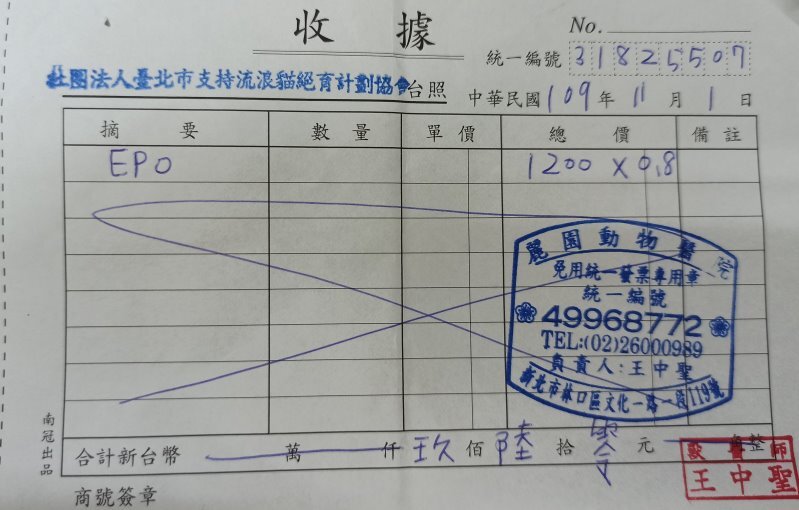 收 據
No.
統一編號 31825507
社團法人臺北市支持流浪貓絕育計劃協會 台照
中華民國 109 年 11 月 1 日
摘 要 數 量 單 價 總 價 備 註
EPO 1200 x 0.8
麗園動物醫院
免用統一發票專用章
統一編號
49968772
TEL:(02)26000989
負責人:王中聖
新北市林口區文化一路一段119號
南冠出品
合計新台幣 萬 仟 玖 佰 陸 拾 零 元 角整
獸醫師
王中聖
商號簽章